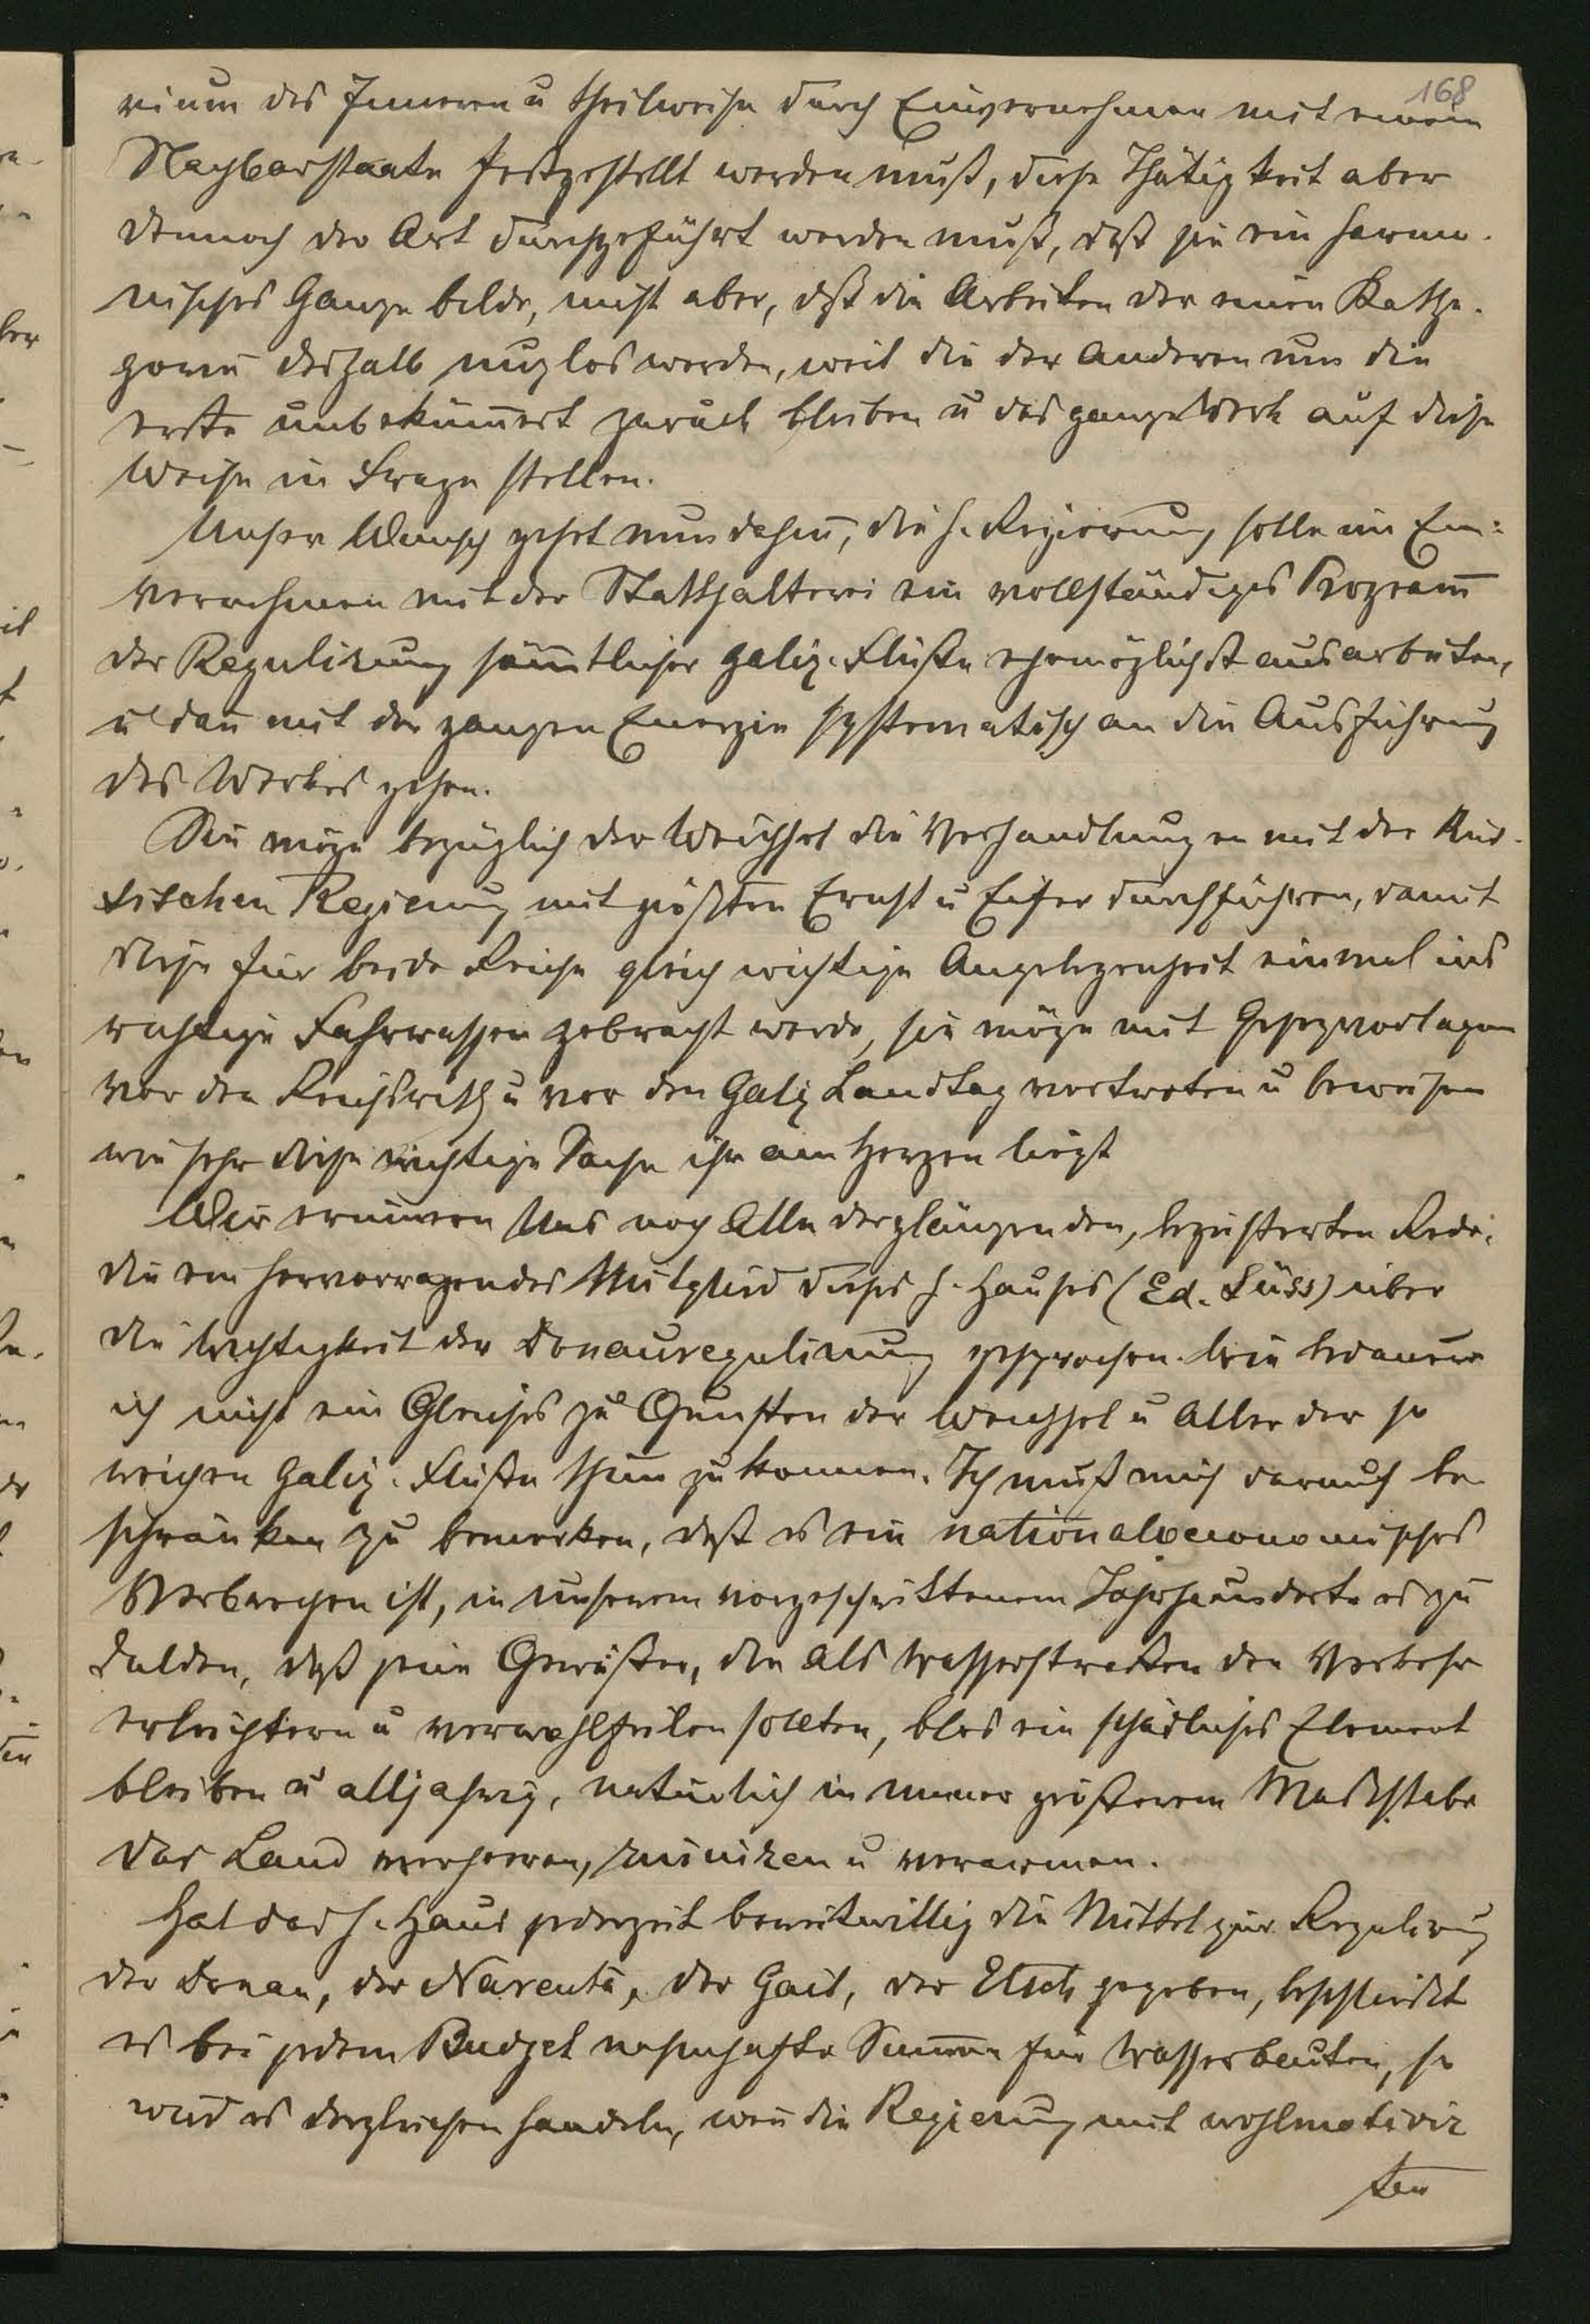 168
rium des Inneren u theilweise durch Einvernehmen mit einem
Nachbarstaate festgestellt werden muß, diese Thätigkeit aber
dennoch der Art durchgeführt werden muß, daß sie ein harmo-
nisches Ganze bilde, nicht aber, daß die Arbeiten der einen Kathe-
gorie deshalb nuzlos werden, weil die der Anderen um die
erste unbekümert zurück bleiben u das ganze Werk auf diese
Weise in Frage stellen.
Unser Wunsch gehet nun dahin, die h. Regierung solle im Ein-
vernehmen mit der Statthalterei ein vollständiges Program
der Regulirung sämtlicher galiz. Fluße ehemöglichst ausarbeiten,
u dan mit der ganzen Energie systematisch an die Ausführung
des Werkes gehen.
Sie möge bezüglich der Weichsel die Verhandlungen mit der Rus-
sischen Regierung mit größten Ernst u Eifer durchführen, damit
diese für beide Reiche gleich wichtige Angelegenheit einmal ins
richtige Fahrwasser gebracht werde, sie möge mit Gesezvorlagen
vor den Reichsrath u vor den Galiz Landtag vortreten u beweisen
wie sehr diese wichtige Sache ihr am Herzen liegt
Wir erinnern Uns noch Alle der glänzenden, begeisterten Rede,
die ein hervorragendes Mitglied dieses h. Hauses (Ed. Süss) über
die Wichtigkeit der Donauregulirung gesprochen. Wie bedauere
ich nicht ein Gleiches zu Gunsten der Weichsel u Aller der so
reichen Galiz. Fluße thun zu konnen. Ich muß mich darauf be
schränken zu bemerken, daß es ein nationaloeconomisches
Verbrechen ist, in unserem vorgeschrittenem Jahrhunderte es zu
dulden, daß jene Gewäßer, die als Wasserstraßen den Verkehr
erleichtern u verwohlfeilen sollten, blos ein schädliches Element
bleiben u alljahrig, natürlich in immer größerem Masstabe
das Land verheeren, ruiniren u verarmen.
Hat das h. Haus jederzeit bereitwillig die Mittel zur Regulirung
der Donau, der Narenta, der Gail, der Etsch gegeben, beschließt
es bei jedem Budget nahmhafte Summe für Wasserbauten, so
wird es dergleichen handeln, wen die Regierung mit wohlmotivir
ten